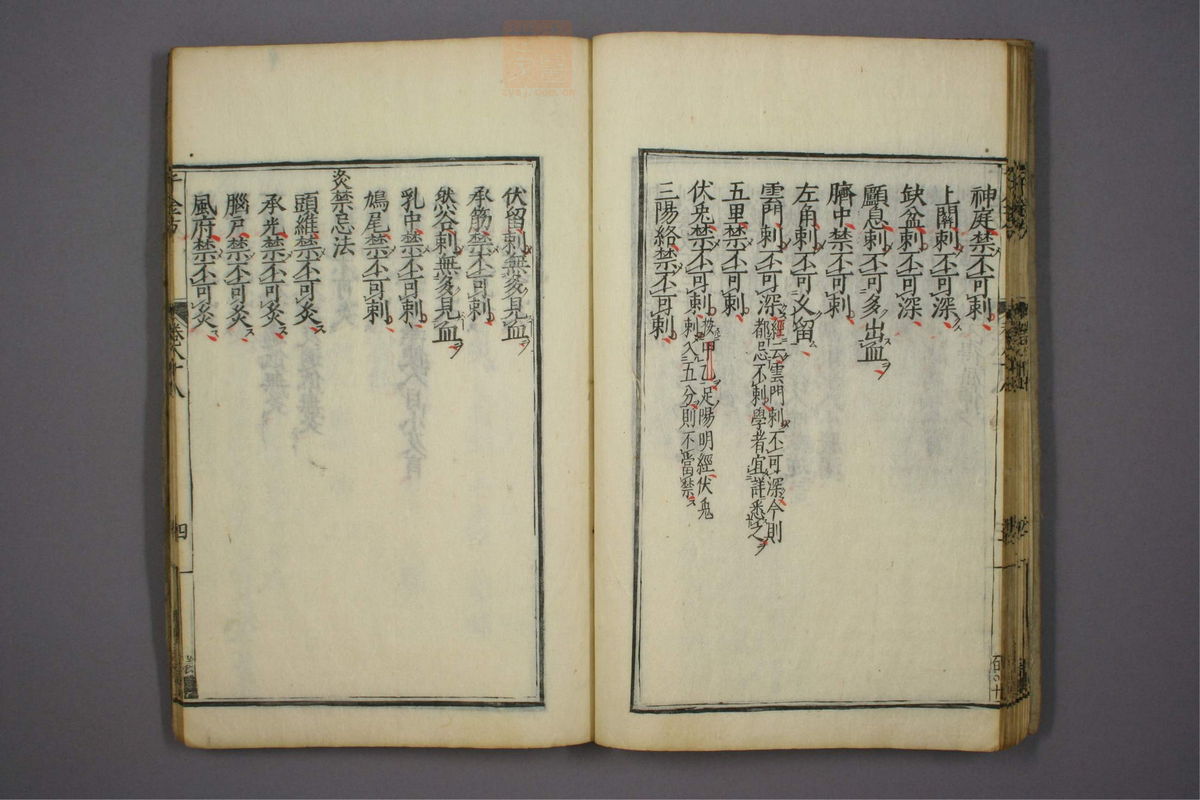 神庭禁不可刺
上關刺不可深
缺盆刺不可深
顱息刺不可多出血
臍中禁不可刺
左角刺不可久留
雲門刺不可深經云雲門刺不可深今則
都忌不刺學者宜詳悉之
五里禁不可刺
伏兎禁不可刺按甲乙足陽明經伏兎
刺入五分則不當禁
三陽絡禁不可刺
伏留刺無多見血
承筋禁不可刺
然谷刺無多見血
乳中禁不可刺
鳩尾禁不可刺
灸禁忌法
頭維禁不可灸
承光禁不可灸
腦戸禁不可灸
風府禁不可灸
千金方
卷八十八
四